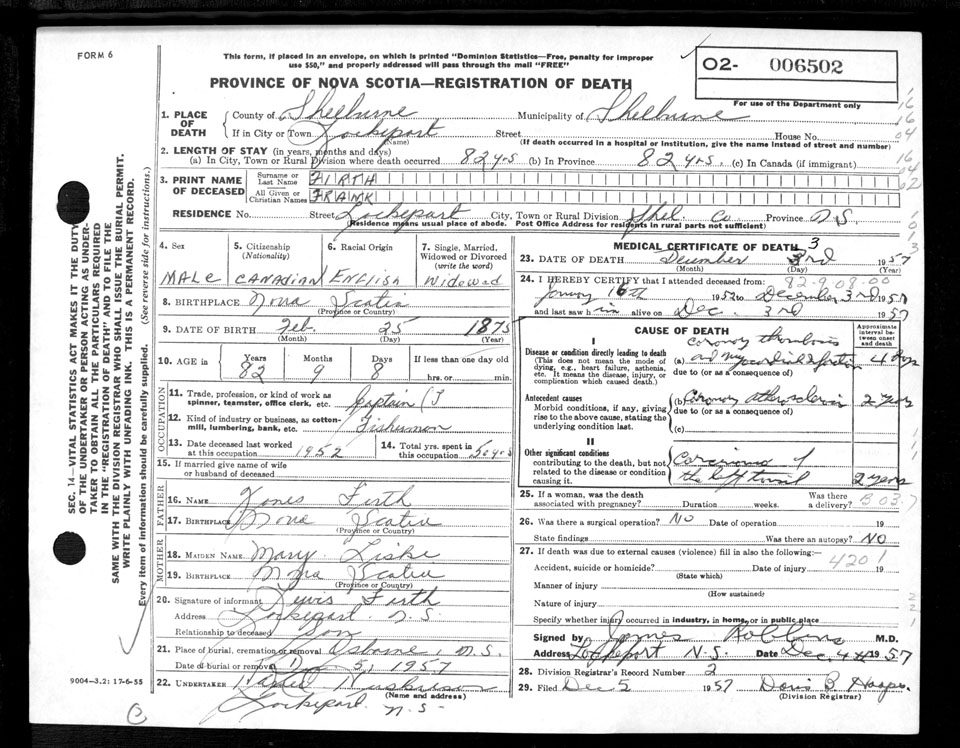 FORM 6
This form, if placed in an envelope, on which is printed "Dominion Statistics—Free, penalty for improper
use $50," and properly addressed will pass through the mail "FREE"
O2- 006502
For use of the Department only
PROVINCE OF NOVA SCOTIA—REGISTRATION OF DEATH
1. PLACE OF DEATH
County of Shelburne Municipality of Shelburne
If in City or Town Lockeport Street House No.
(Name) (If death occurred in a hospital or institution, give the name instead of street and number)
2. LENGTH OF STAY (in years, months and days)
(a) In City, Town or Rural Division where death occurred 82 yrs (b) In Province 82 yrs. (c) In Canada (if immigrant)
3. PRINT NAME OF DECEASED
Surname or Last Name FIRTH
All Given or Christian Names FRANK
RESIDENCE No. Street Lockeport City, Town or Rural Division Shel. Co Province N.S.
(Residence means usual place of abode. Post Office Address for residents in rural parts not sufficient)
4. Sex
MALE
5. Citizenship (Nationality)
CANADIAN
6. Racial Origin
ENGLISH
7. Single, Married, Widowed or Divorced (write the word)
Widowed
8. BIRTHPLACE Nova Scotia
(Province or Country)
9. DATE OF BIRTH Feb. 25 1875
(Month) (Day) (Year)
10. AGE in Years 82 Months 9 Days 8 If less than one day old
hrs. or min.
OCCUPATION
11. Trade, profession, or kind of work as spinner, teamster, office clerk, etc. Captain
12. Kind of industry or business, as cotton-mill, lumbering, bank, etc. Fisherman
13. Date deceased last worked at this occupation 1952
14. Total yrs. spent in this occupation 50 yrs
15. If married give name of wife or husband of deceased
FATHER
16. NAME Firth
17. BIRTHPLACE Nova Scotia
(Province or Country)
MOTHER
18. MAIDEN NAME Mary
19. BIRTHPLACE Nova Scotia
(Province or Country)
20. Signature of informant Lewis Firth
Address Lockeport N.S.
Relationship to deceased Son
21. Place of burial, cremation or removal Osborne, N.S.
Date of burial or removal Dec 5, 1957
22. UNDERTAKER
(Name and address)
Lockeport N.S.
MEDICAL CERTIFICATE OF DEATH
3
23. DATE OF DEATH December 3rd 1957
(Month) (Day) (Year)
24. I HEREBY CERTIFY that I attended deceased from:
82-9-08-00
16th 1952 to December 3rd 1957
and last saw him alive on Dec. 3rd 1957
CAUSE OF DEATH
Approximate interval between onset and death
I
Disease or condition directly leading to death
(This does not mean the mode of dying, e.g., heart failure, asthenia, etc. It means the disease, injury, or complication which caused death.)
coronary thrombosis
(a) and myocardial infarction 4 days
due to (or as a consequence of)
Antecedent causes
Morbid conditions, if any, giving rise to the above cause, stating the underlying condition last.
(b) Coronary atherosclerosis 2 years
due to (or as a consequence of)
(c)
II
Other significant conditions
contributing to the death, but not related to the disease or condition causing it.
Carcinoma of
the left tonsil 2 years
25. If a woman, was the death associated with pregnancy? Duration weeks. Was there a delivery?
26. Was there a surgical operation? NO Date of operation 19
State findings Was there an autopsy? NO
27. If death was due to external causes (violence) fill in also the following:—
4201
Accident, suicide or homicide? Date of injury 19
(State which)
Manner of injury
(How sustained)
Nature of injury
Specify whether injury occurred in industry, in home, or in public place
Signed by James Robbins M.D.
Address Lockeport N.S. Date Dec. 4th 1957
28. Division Registrar's Record Number 2
29. Filed Dec 5 1957
(Division Registrar)
SEC. 14—VITAL STATISTICS ACT MAKES IT THE DUTY
OF THE UNDERTAKER OR PERSON ACTING AS UNDER-
TAKER TO OBTAIN ALL THE PARTICULARS REQUIRED
IN THE "REGISTRATION OF DEATH" AND TO FILE THE
SAME WITH THE DIVISION REGISTRAR WHO SHALL ISSUE THE BURIAL PERMIT.
WRITE PLAINLY WITH UNFADING INK. THIS IS A PERMANENT RECORD.
Every item of information should be carefully supplied. (See reverse side for instructions.)
9004-3.2: 17-6-55